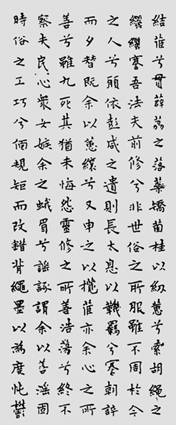 結茝兮貫薜荔之落蕊矯菌桂以紉蕙兮索胡繩之
纚纚謇吾法夫前修兮非世俗之所服雖不周於今
之人兮願依彭咸之遺則長太息以鞿羈兮謇朝誶
而夕替既余以蕙纕兮又申之以攬茝亦余心之所
善兮雖九死其猶未悔怨靈修之所善浩蕩兮終不
察夫民心衆女嫉余之蛾眉兮謠諑謂余以善淫固
時俗之工巧兮偭規矩而改錯背繩墨以為度忳鬱